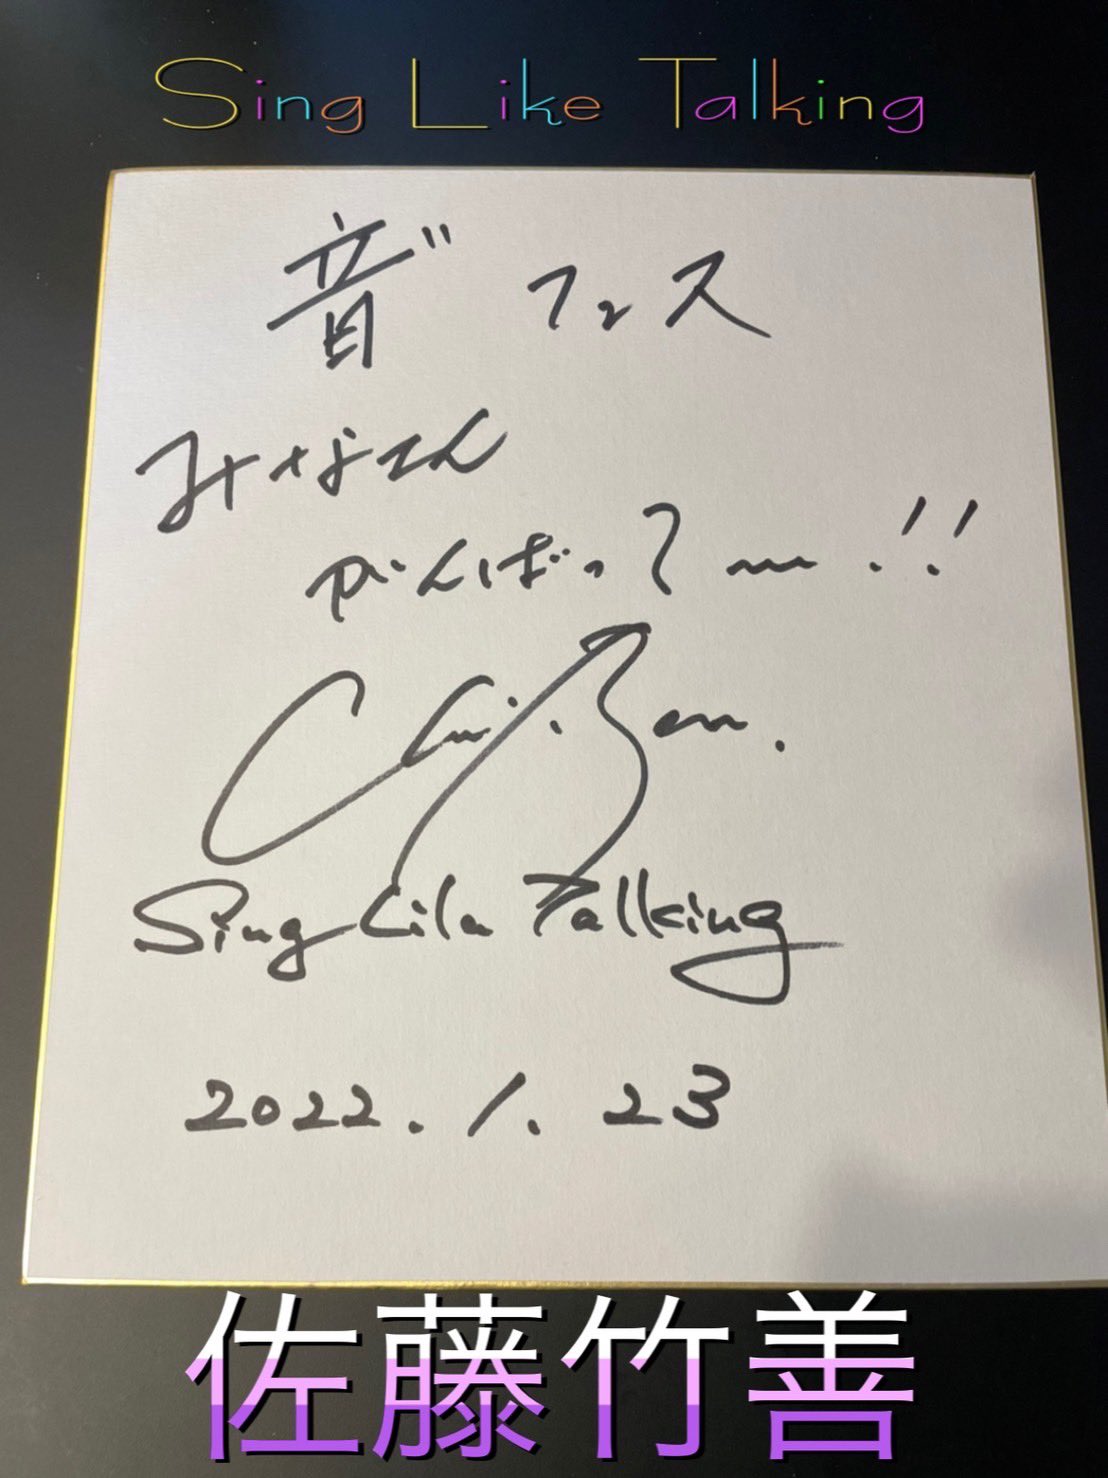 Sing Like Talking
音" フェス
みなさん
がんばってー!!
Chi.Zen.
Sing Like Talking
2022.1.23
佐藤竹善